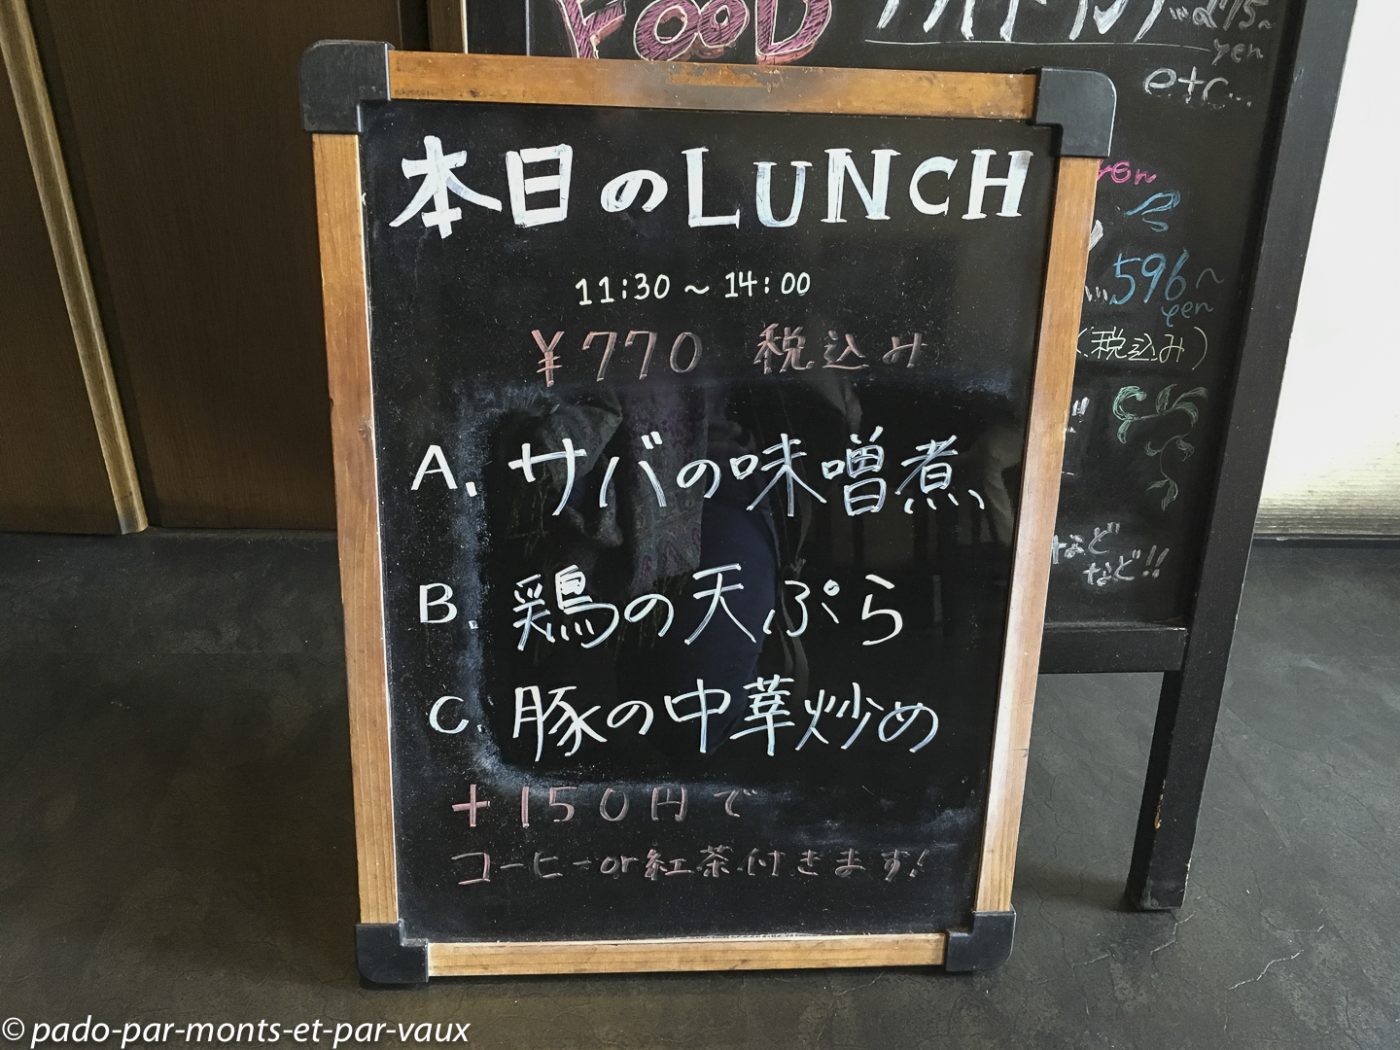 FOOD
275~
yen
etc...
本日のLUNCH
11:30～14:00
¥770 税込み
A. サバの味噌煮
B. 鶏の天ぷら
C. 豚の中華炒め
+150円で
コーヒーor紅茶付きます!
yen
596~
yen
(税込み)
など
など!!
© pado-par-monts-et-par-vaux